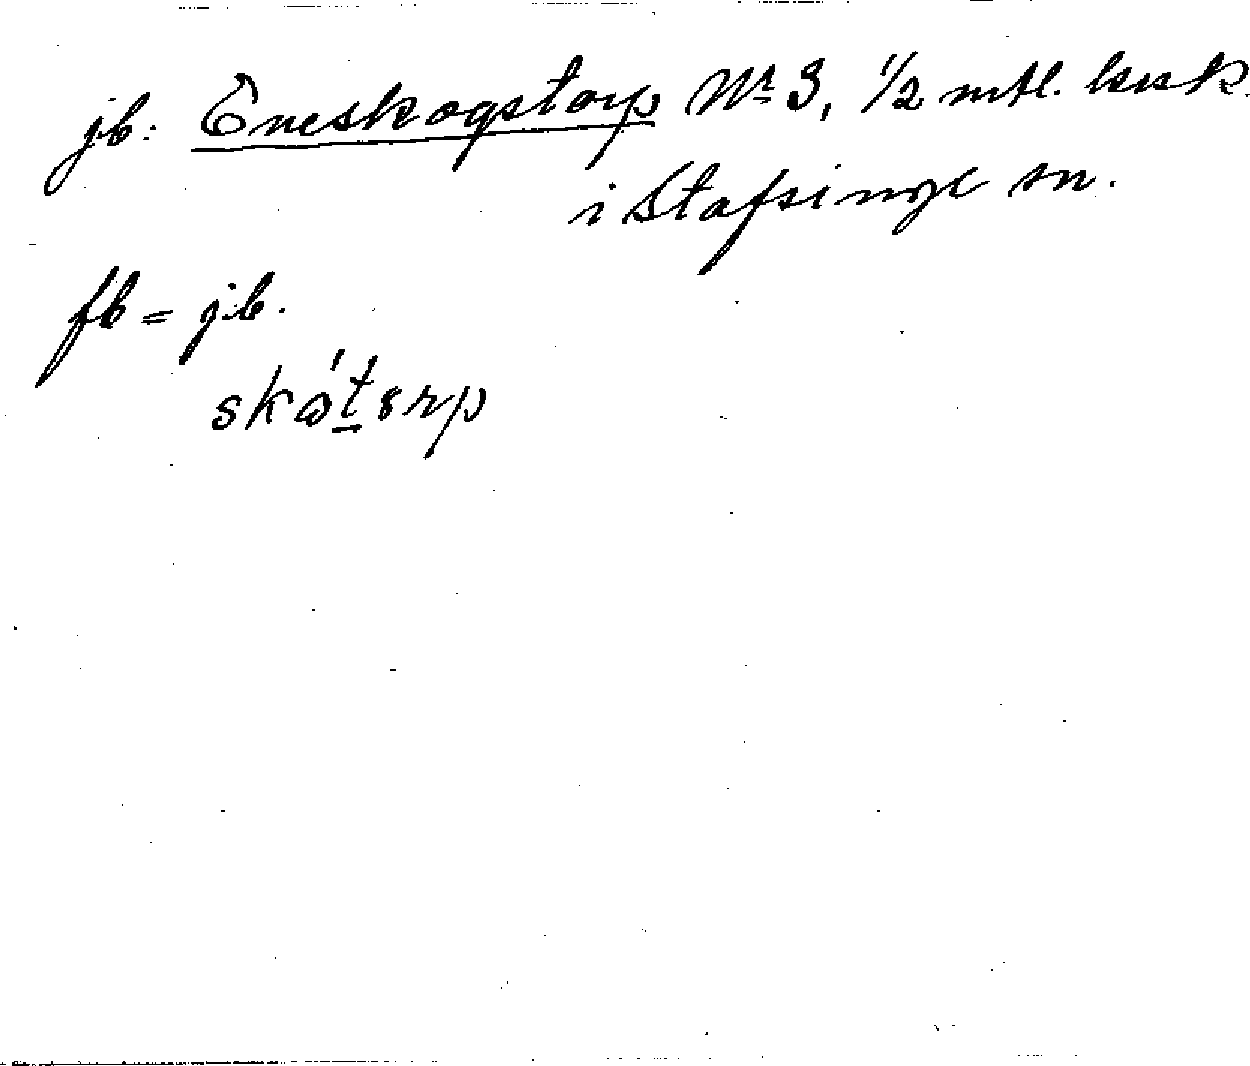 jb: Eneskogstorp Nr 3, 1/2 mtl. krsk.
i Stafsinge sn.
fb = jb.